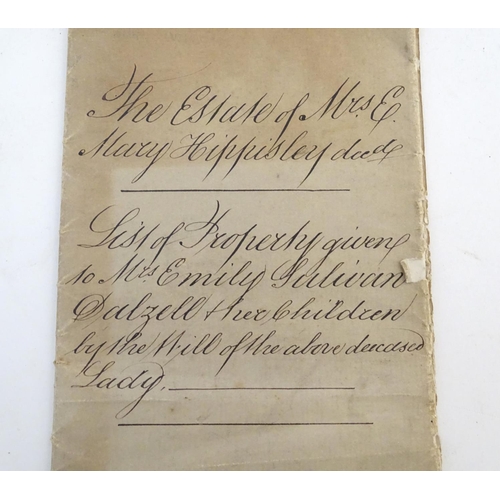 The Estate of Mrs E.
Mary Hippisley decd
List of Property given
to Mrs Emily Sulivan
Dalzell & her Children
by the Will of the above deceased
Lady.